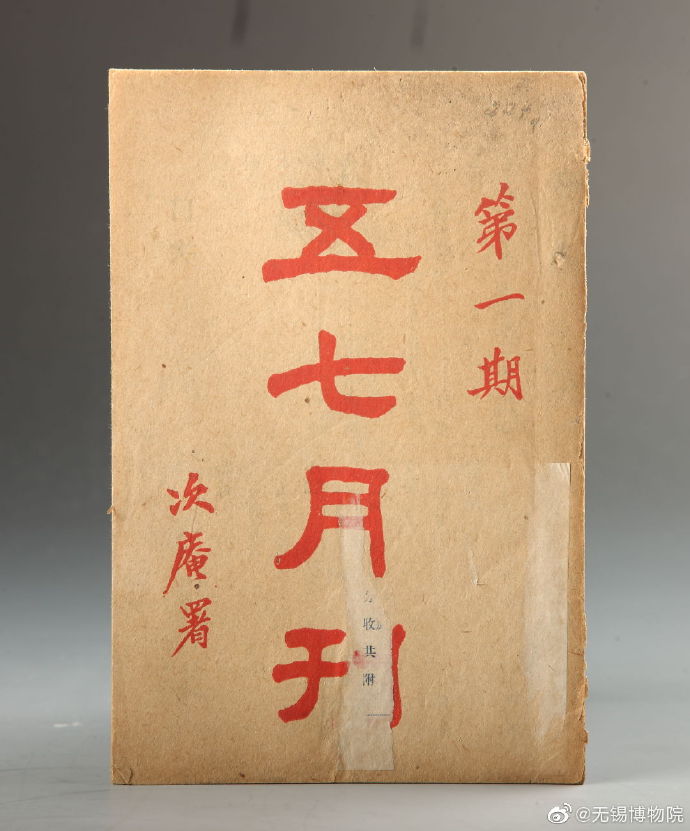 第一期
五七月刊
次庵署
收共附
@无锡博物院